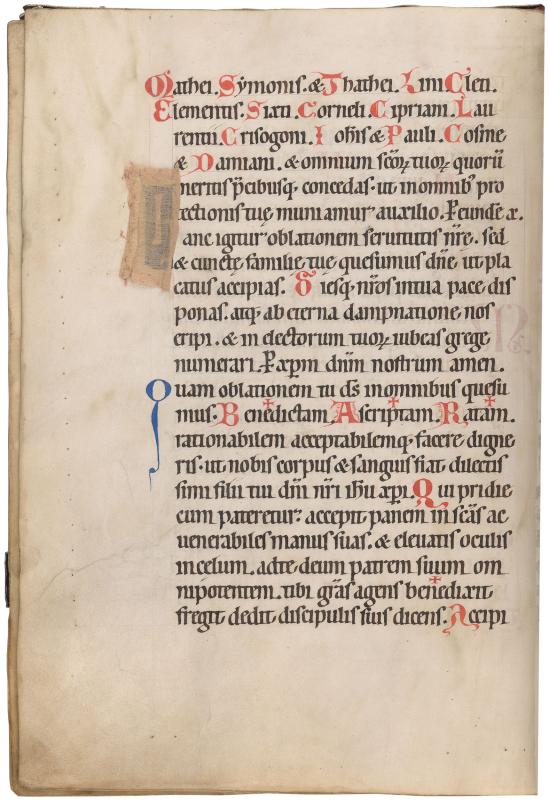 Mathei. Symonis. & Thathei. Lini Cleti.
Clementis. Sixti. Corneli. Cipriani. Lau
rentii. Crisogoni. Iohīs & Pauli. Cosme
& Damiani. & omnium scōꝝ tuoꝝ quorū
meritis p̄cibusq; concedas. ut in omnib; pro
tectionis tuę muniamur auxilio. P eundē x.
anc igitur oblationem seruitutis nr̄e. sed
& cunctę familię tuę quesumus dn̄e ut pla
catus accipias. Diesq; nr̄os in tua pace dis
ponas. atq; ab eterna dampnatione nos
eripi. & in electorum tuoꝝ iubeas grege
numerari. P xp̄m dn̄m nostrum amen.
Quam oblationem tu ds̄ in omnibus quesu
mus. Bene✝dictam. Ascrip✝tam. Ra✝tam.
rationabilem acceptabilemq; facere digne
ris. ut nobis corpus & sanguis fiat dilectis
simi filii tui dn̄i nr̄i ih̄u xp̄i. Qui pridie
cum pateretur. accepit panem in scās ac
venerabiles manus suas. & eleuatis oculis
in celum. ad te deum patrem suum om
nipotentem. tibi grās agens bene✝dixit
fregit dedit discipulis suis dicens. Accipi